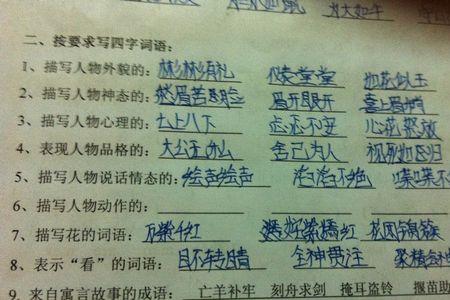 大如牛
二、按要求写四字词语:
1、描写人物外貌的: 彬彬有礼 仪表堂堂 如花似玉
2、描写人物神态的: 愁眉苦脸 眉开眼 喜上眉梢
3、描写人物心理的: 七上八下 忐忑不安 心花怒放
4、表现人物品格的: 大公无私 舍己为人 视死如归
5、描写人物说话情态的: 绘声绘声 滔滔不绝 喋喋不
6、描写人物动作的:
7、描写花的词语: 万紫千红 紫嫣红 花团锦簇
8、表示“看”的词语: 目不转睛 全神贯注 聚精会神
9、来自寓言故事的成语: 亡羊补牢 刻舟求剑 掩耳盗铃 揠苗助